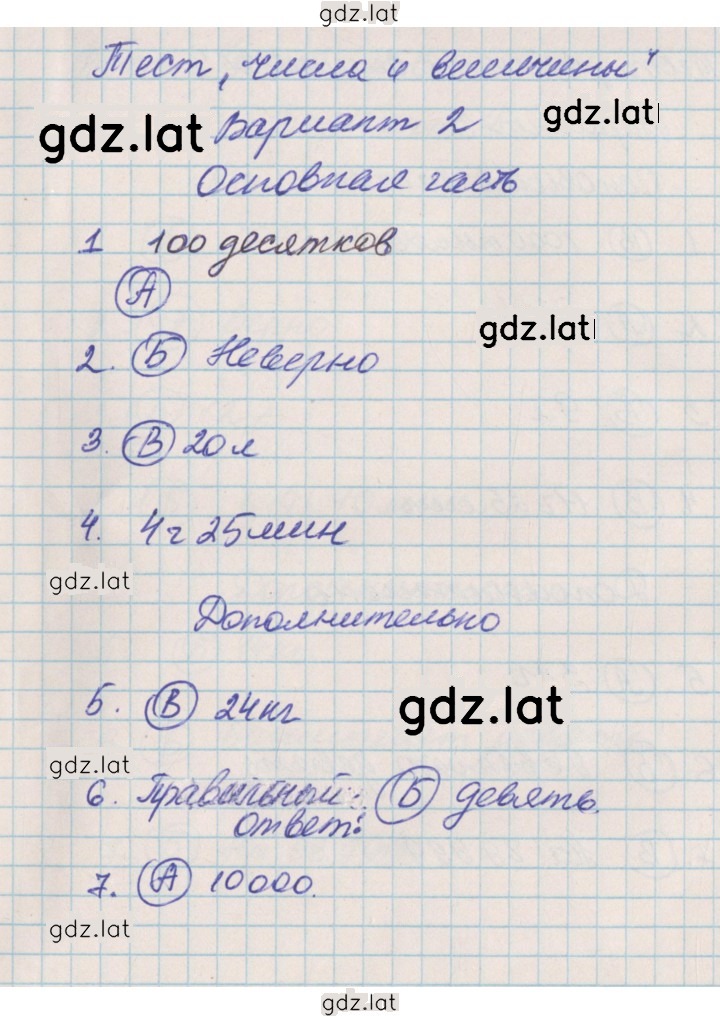 gdz.lat
Тест „числа и величины"
gdz.lat Вариант 2 gdz.lat
Основная часть
1 100 десятков
А
gdz.lat
2. Б Неверно
3. В 20 л
4. 4 ч 25 мин
gdz.lat
Дополнительно
5. В 24 кг gdz.lat
gdz.lat
6. Правильный Б девять.
ответ:
7. А 10 000.
gdz.lat
gdz.lat